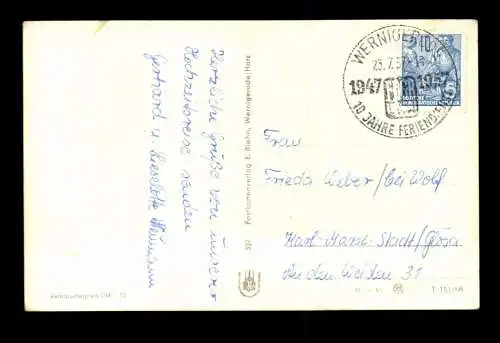 Herzliche Grüße von unserer
Hochzeitsreise senden
Gerhard u. Lieselotte
Verkaufspreis DM -.15
331 Postkartenverlag E. Riehn, Wernigerode/Harz
WERNIGERODE
23.7.57
1947 1957
10 JAHRE FERIEND
5
Frau
Frieda Weber / bei Wolf
Karl-Marx-Stadt / Glösa
An den Weiden 31